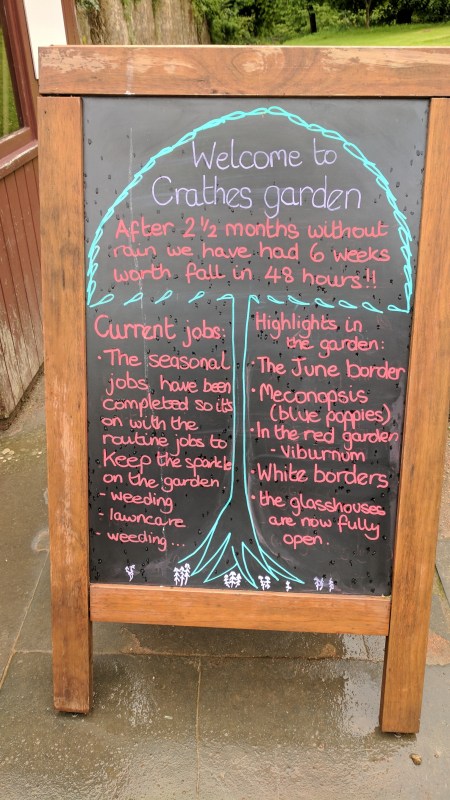 Welcome to
Crathes garden
After 2 1/2 months without
rain we have had 6 weeks
worth fall in 48 hours!!
Current jobs:
• The seasonal
jobs have been
completed so it's
on with the
routine jobs to
keep the sparkle
on the garden
- weeding
- lawncare
- weeding...
Highlights in
the garden:
• The June border
• Meconopsis
(blue poppies)
• In the red garden
- Viburnum
• White borders
• the glasshouses
are now fully
open.